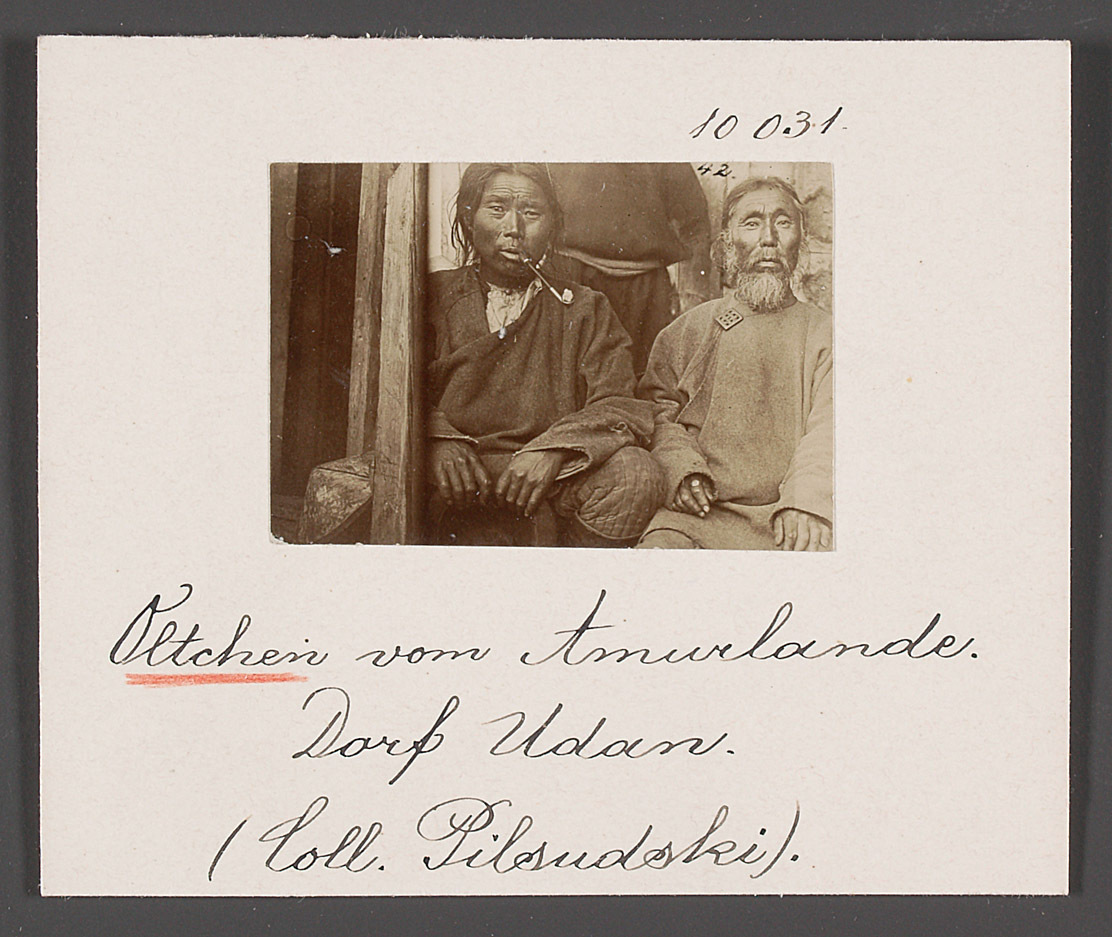 10 031.
42.
Oltchen vom Amurlande.
Dorf Udan.
(Coll. Pilsudski).